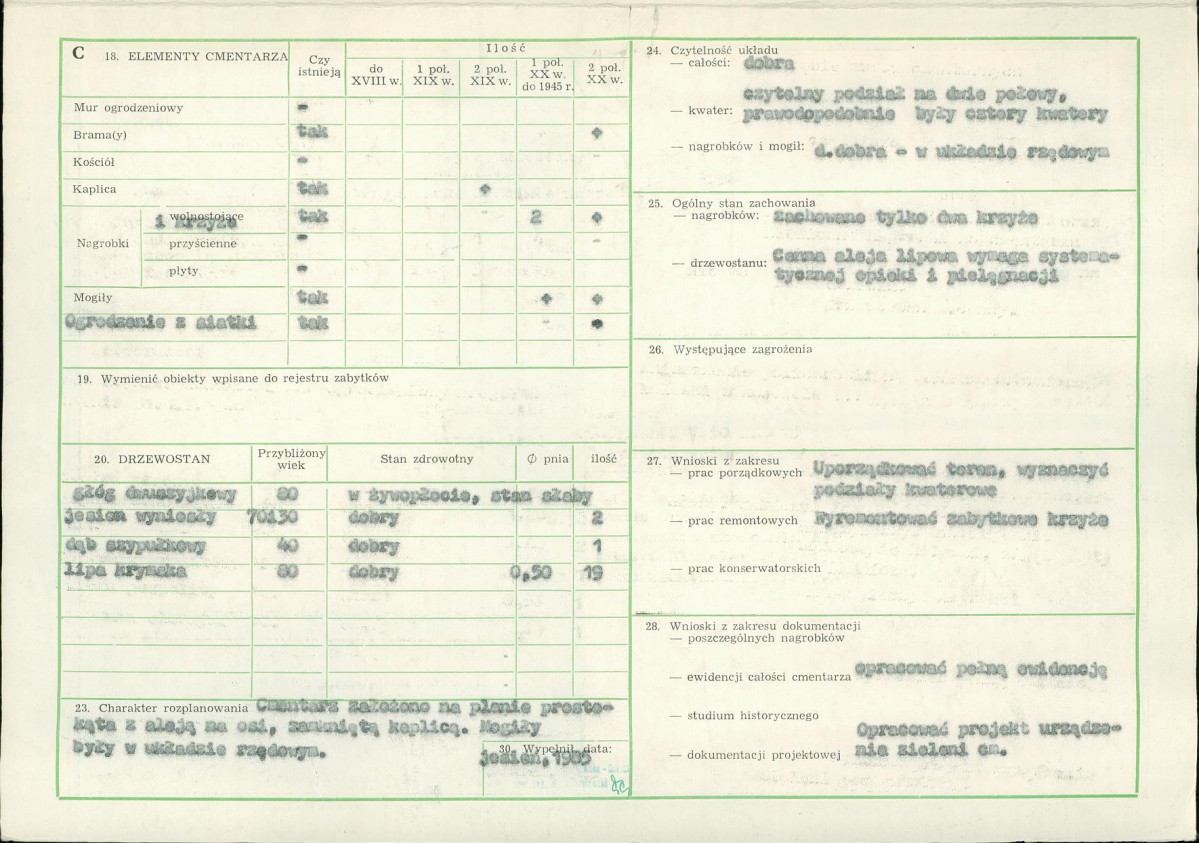 C 18. ELEMENTY CMENTARZA
Czy istnieją
Ilość
do XVIII w.
1 poł. XIX w.
2 poł. XIX w.
1 poł. XX w. do 1945 r.
2 poł. XX w.
Mur ogrodzeniowy -
Brama(y) tak +
Kościół -
Kaplica tak +
Nagrobki
wolnostojące tak 2 +
i krzyże
przyścienne -
płyty -
Mogiły tak + +
Ogrodzenie z siatki tak
19. Wymienić obiekty wpisane do rejestru zabytków
20. DRZEWOSTAN Przybliżony wiek Stan zdrowotny Ø pnia ilość
głóg dwuszyjkowy 80 w żywopłocie, stan słaby
jesion wyniosły 70130 dobry 2
dąb szypułkowy 40 dobry 1
lipa krymska 80 dobry 0,50 19
23. Charakter rozplanowania Cmentarz założono na planie prosto-
kąta z aleją na osi, zamkniętą kaplicą. Mogiły
były w układzie rzędowym.
30. Wypełnił, data:
jesień, 1985
24. Czytelność układu
— całości: dobra
czytelny podział na dwie połowy,
— kwater: prawdopodobnie były cztery kwatery
— nagrobków i mogił: d.dobra - w układzie rzędowym
25. Ogólny stan zachowania
— nagrobków: Zachowane tylko dwa krzyże
— drzewostanu: Cenna aleja lipowa wymaga systema-
tycznej opieki i pielęgnacji
26. Występujące zagrożenia
27. Wnioski z zakresu
— prac porządkowych Uporządkować teren, wyznaczyć
podziały kwaterowe
— prac remontowych Wyremontować zabytkowe krzyże
— prac konserwatorskich
28. Wnioski z zakresu dokumentacji
— poszczególnych nagrobków
— ewidencji całości cmentarza opracować pełną ewidencję
— studium historycznego
Opracować projekt urządze-
— dokumentacji projektowej nia zieleni cm.